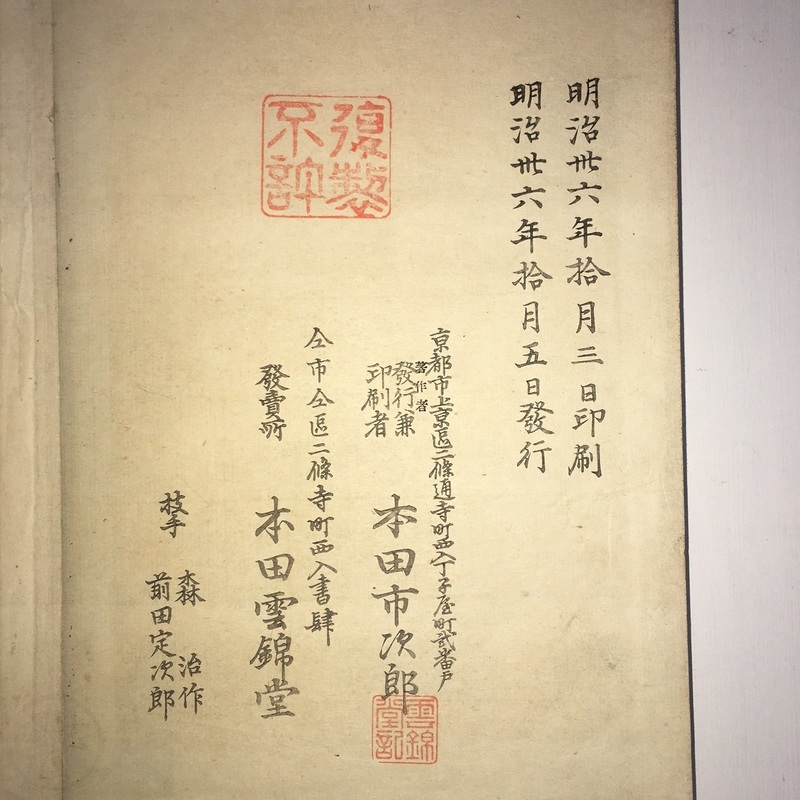 明治卅六年拾月三日印刷
明治卅六年拾月五日發行
復製
不許
京都市上京區二條通寺町西入丁子屋町貳番戸
著作者
發行兼
印刷者
本田市次郎
雲錦
堂記
仝市仝區二條寺町西入書肆
發賣所
本田雲錦堂
技手
森治作
前田定次郎